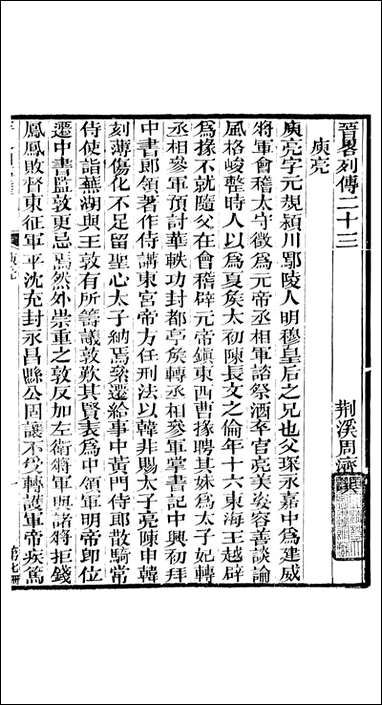 晉畧列傳二十三
荆溪周濟譔
庾亮
庾亮字元規潁川鄢陵人明穆皇后之兄也父琛永嘉中爲建威
將軍會稽太守徵爲元帝丞相軍諮祭酒卒官亮美姿容善談論
風格峻整時人以爲夏矦太初陳長文之倫年十六東海王越辟
爲掾不就隨父在會稽辟元帝鎭東西曹掾聘其妹爲太子妃轉
丞相參軍預討華軼功封都亭矦轉丞相參軍掌書記中興初拜
中書郎領著作侍講東宮帝方任刑法以韓非賜太子亮陳申韓
刻薄傷化不足畱聖心太子納焉絫遷給事中黃門侍郎散騎常
侍使詣蕪湖與王敦有所籌議敦歎其賢表爲中領軍明帝卽位
遷中書監敦更忌焉然外崇重之敦反加左衛將軍與諸將拒錢
鳳鳳敗督東征軍平沈充封永昌縣公固讓不受轉護軍帝疾篤